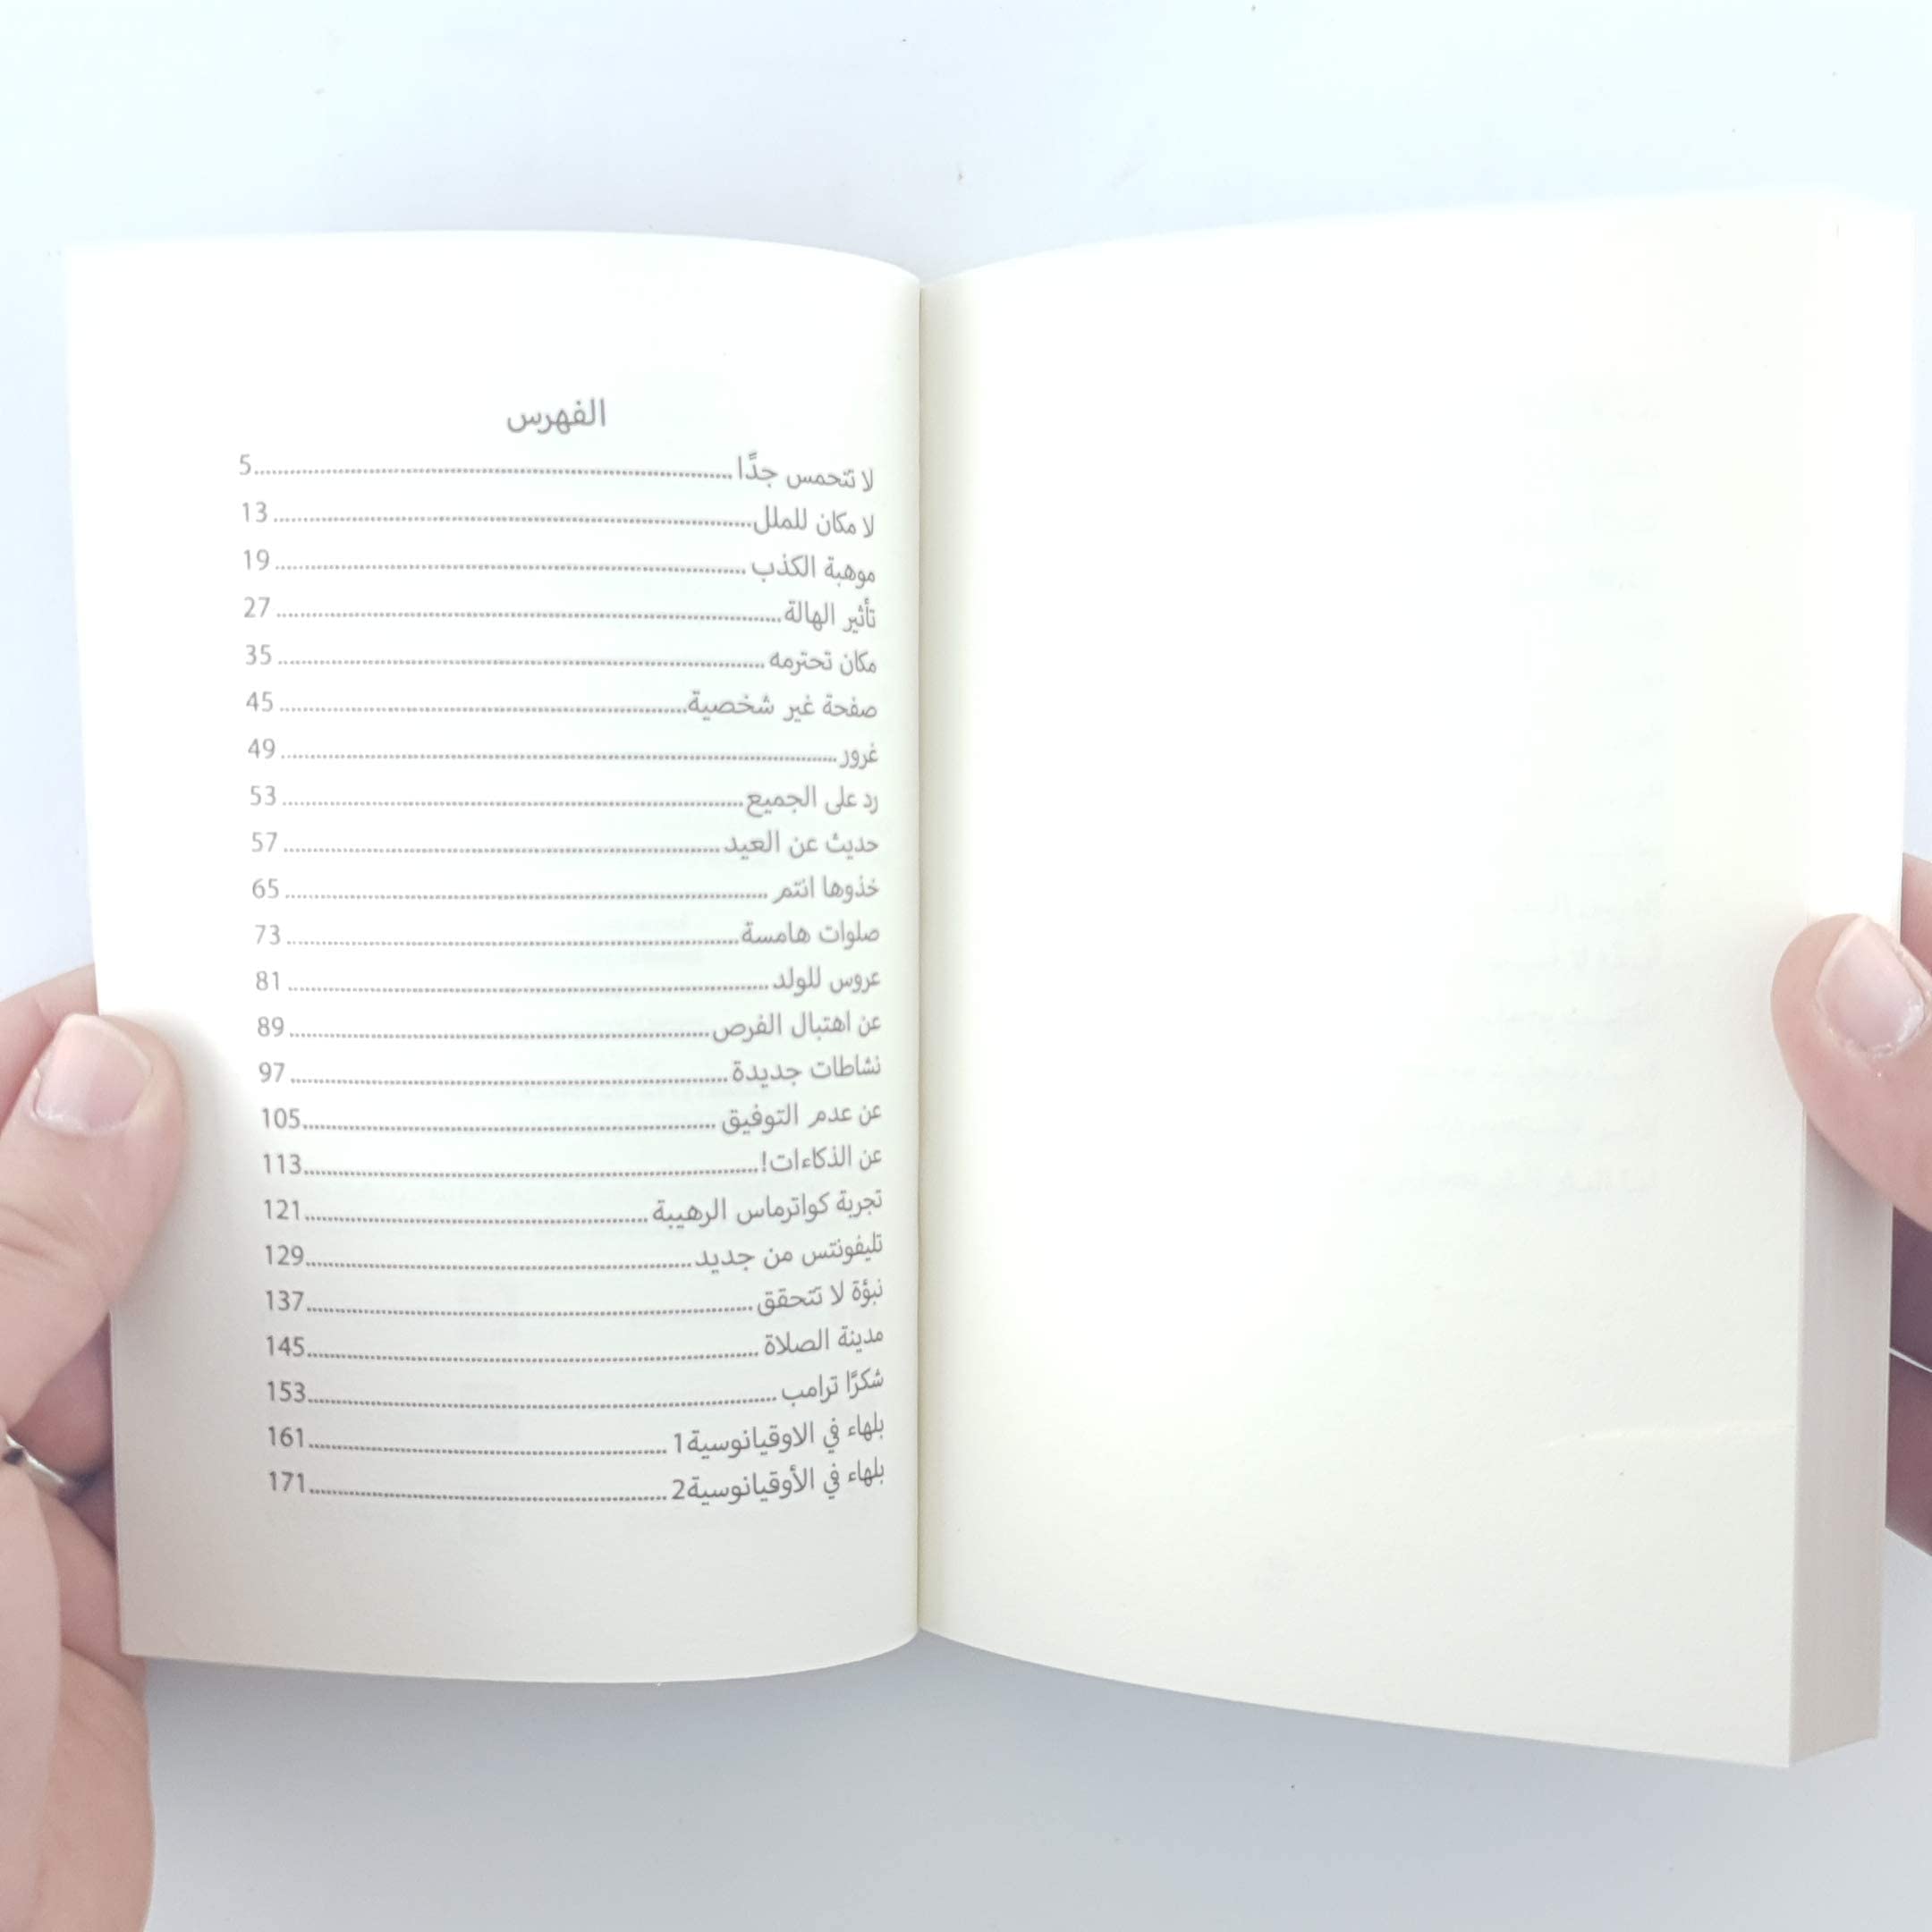 الفهرس
لا تتحمس جدًّا ..... 5
لا مكان للملل ..... 13
موهبة الكذب ..... 19
تأثير الهالة ..... 27
مكان تحترمه ..... 35
صفحة غير شخصية ..... 45
غرور ..... 49
رد على الجميع ..... 53
حديث عن العيد ..... 57
خذوها انتم ..... 65
صلوات هامسة ..... 73
عروس للولد ..... 81
عن اهتبال الفرص ..... 89
نشاطات جديدة ..... 97
عن عدم التوفيق ..... 105
عن الذكاءات! ..... 113
تجربة كواترماس الرهيبة ..... 121
تليفونتس من جديد ..... 129
نبؤة لا تتحقق ..... 137
مدينة الصلاة ..... 145
شكرًا ترامب ..... 153
بلهاء في الاوقيانوسية1 ..... 161
بلهاء في الأوقيانوسية2 ..... 171